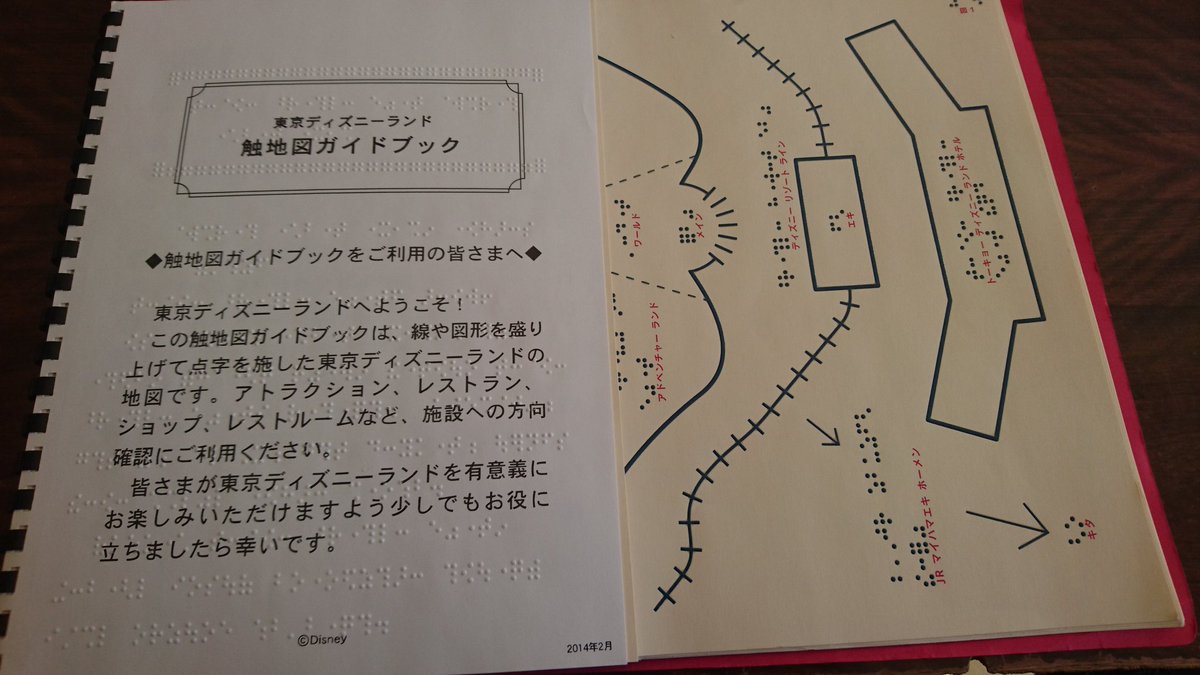 東京ディズニーランド
触地図ガイドブック
◆触地図ガイドブックをご利用の皆さまへ◆
東京ディズニーランドへようこそ！
この触地図ガイドブックは、線や図形を盛り
上げて点字を施した東京ディズニーランドの
地図です。アトラクション、レストラン、
ショップ、レストルームなど、施設への方向
確認にご利用ください。
皆さまが東京ディズニーランドを有意義に
お楽しみいただけますよう少しでもお役に
立ちましたら幸いです。
©Disney
2014年2月
図1
トーキョー ディズニー ランド ホテル
ディズニー リゾート ライン
エキ
メイン
ワールド
アドベンチャー ランド
JR マイハマエキ ホーメン
キタ